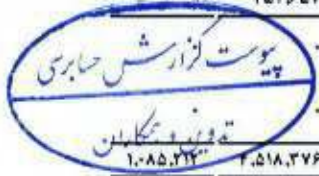 پیوست گزارش حسابرسی
تدوین و همکاران
۱,۰۸۵,۲۱۲ ۲,۵۱۸,۳۷۶